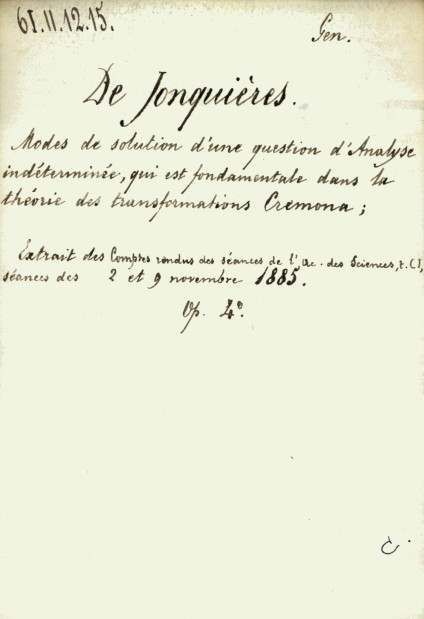 61.11.12.15.
Gen.
De Jonquières.
Modes de solution d'une question d'Analyse
indéterminée, qui est fondamentale dans la
théorie des transformations Cremona;
Extrait des Comptes rendus des séances de l'Ac. des Sciences, t. CI,
séances des 2 et 9 novembre 1885.
Op. 4°.